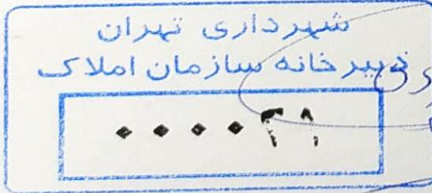 شهرداری تهران
دبیرخانه سازمان املاک